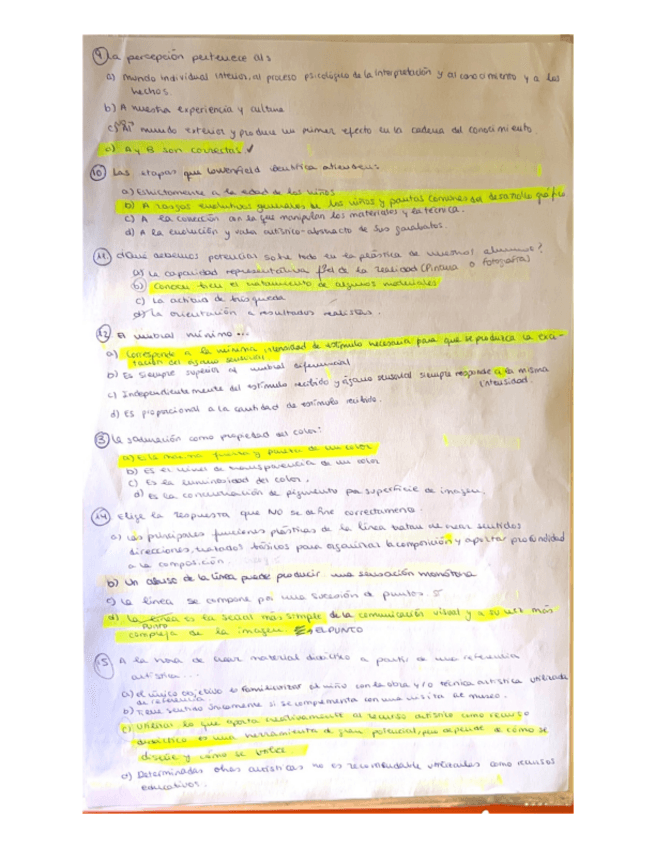 9 La percepción pertenece a:
a) mundo individual interior, al proceso psicológico de la interpretación y al conocimiento y a los
hechos.
b) A nuestra experiencia y cultura
c) "Al" mundo exterior y produce un primer efecto en la cadena del conocimiento.
d) A y B son correctas ✓
10 Las etapas que Lowenfield identifica atienden:
a) Estrictamente a la edad de los niños
b) A rasgos evolutivos generales de los niños y pautas comunes del desarrollo gráfico
c) A la conexión con la que manipulan los materiales y la técnica.
d) A la evolución y valor artístico-abstracto de sus garabatos.
11. ¿Qué debemos potenciar sobre todo en la plástica de nuestros alumnos?
a) La capacidad representativa fiel de la realidad (Pintura o fotografía)
b) Conocer bien el tratamiento de algunos materiales
c) La actitud de búsqueda
d) La orientación a resultados realistas.
12. El umbral mínimo...
a) Corresponde a la mínima intensidad de estímulo necesaria para que se produzca la exci-
tación del órgano sensorial
b) Es siempre superior al umbral diferencial
c) Independientemente del estímulo recibido y órgano sensorial siempre responde a la misma
intensidad.
d) Es proporcional a la cantidad de estímulo recibido.
3 La saturación como propiedad del color:
a) Es la máxima fuerza y pureza de un color
b) Es el nivel de transparencia de un color
c) Es la luminosidad del color.
d) Es la concentración de pigmento por superficie de imagen.
14 Elige la respuesta que NO se define correctamente.
a) Las principales funciones plásticas de la línea tratan de crear sentidos
direcciones, trazados básicos para organizar la composición y aportar profundidad
a la composición.
b) Un abuso de la línea puede producir una sensación monótona
c) La línea se compone por una sucesión de puntos.
d) La línea es la señal más simple de la comunicación visual y a su vez más
punto
compleja de la imagen. → EL PUNTO
15 A la hora de crear material didáctico a partir de una referencia
artística...
a) el único objetivo es familiarizar al niño con la obra y/o técnica artística utilizada
de referencia
b) Tiene sentido únicamente si se complementa con una visita al museo.
c) Utilizar lo que aporta creativamente al recurso artístico como recurso
didáctico es una herramienta de gran potencial, pero depende de cómo se
diseñe y cómo se utilice
d) Determinadas obras artísticas no es recomendable utilizarlas como recursos
educativos.